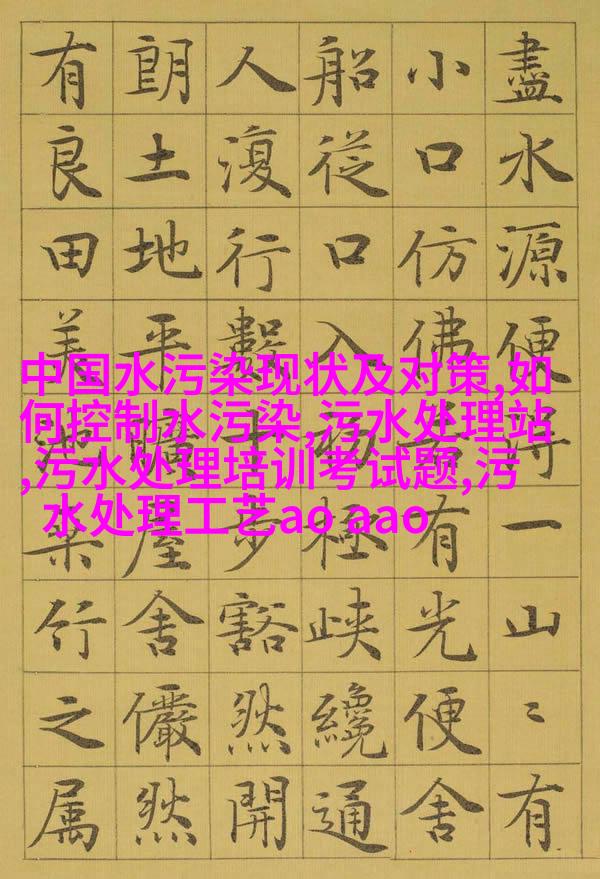 盡水源便得一山〻有
小口仿佛若有光便舍
船從口入初極峡纔通
人復行數十步豁然開
朗土地平曠屋舍儼然
有良田美池桑竹之属
中国水污染现状及对策,如
何控制水污染,污水处理站
,污水处理培训考试题,污
水处理工艺ao aao